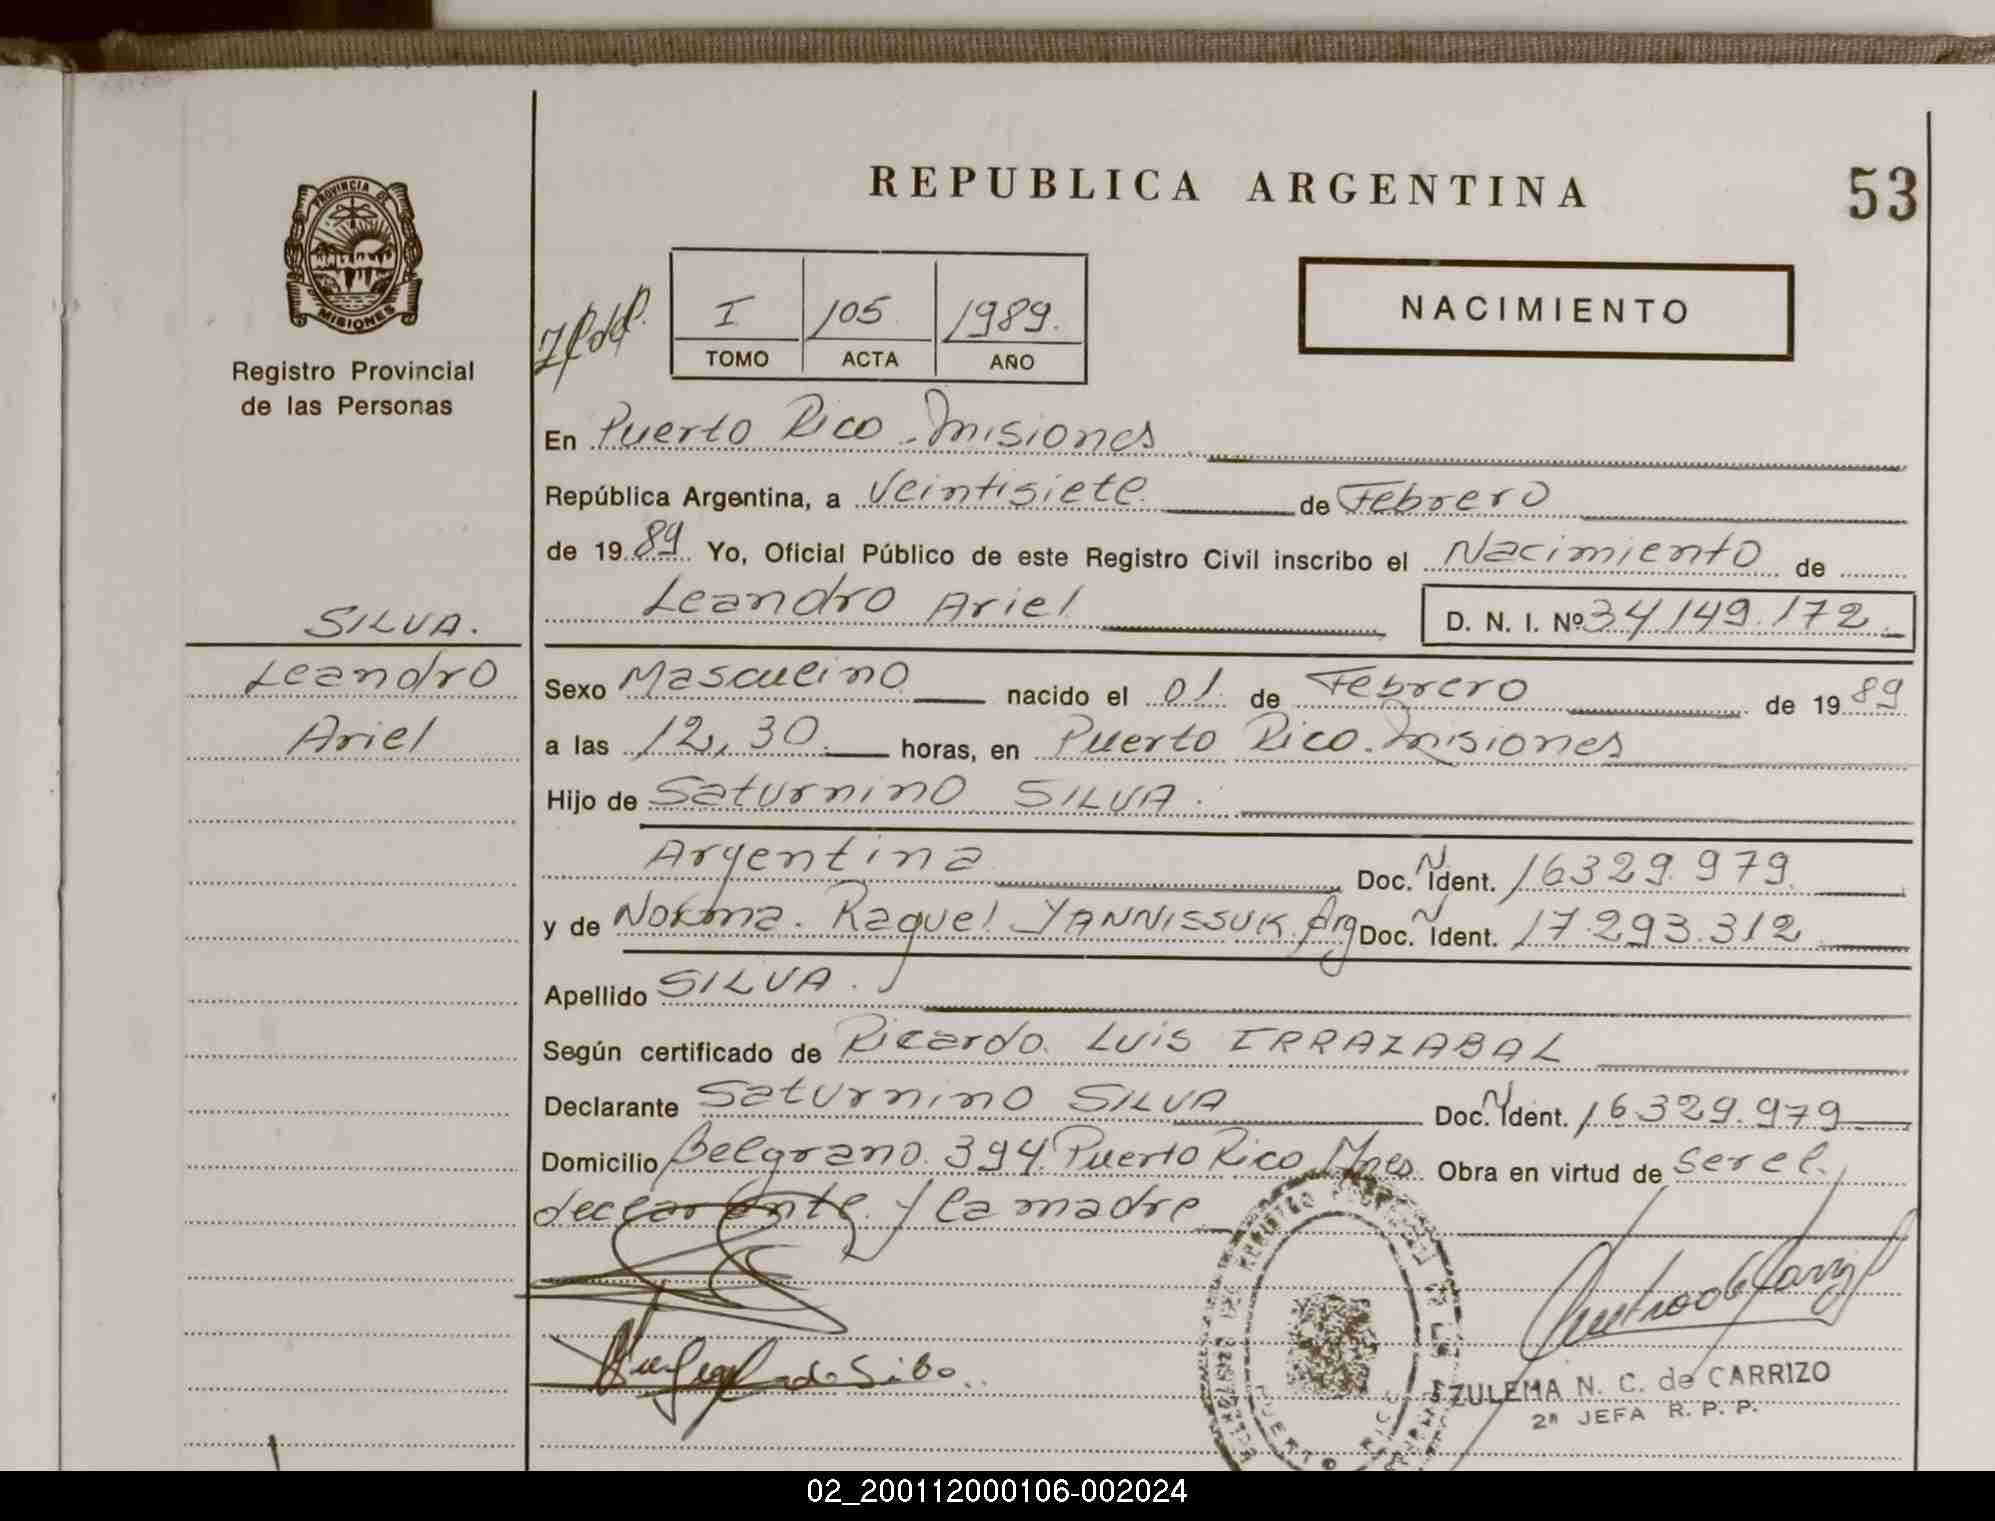 REPUBLICA ARGENTINA
53
PROVINCIA DE
MISIONES
Registro Provincial
de las Personas
I 105 1989.
TOMO ACTA AÑO
NACIMIENTO
En Puerto Rico - Misiones
República Argentina, a Veintisiete de Febrero
de 19 89 Yo, Oficial Público de este Registro Civil inscribo el Nacimiento de
Leandro Ariel D. N. I. Nº 34 149.172
SILVA.
Leandro
Ariel
Sexo Masculino nacido el 01 de Febrero de 19 89
a las 12,30 horas, en Puerto Rico. Misiones
Hijo de Saturnino SILVA.
Argentina Doc. N Ident. 16329.979.
y de Norma. Raquel YANNISSUK. Arg Doc. N Ident. 17.293.312
Apellido SILVA.
Según certificado de Ricardo Luis IRRAZABAL
Declarante Saturnino SILVA Doc. N Ident. 16.329.979
Domicilio Belgrano. 394. Puerto Rico, Mnes Obra en virtud de ser el
declarante y la madre
ZULEMA N. C. de CARRIZO
2ª JEFA R. P. P.
PUERTO RICO
02_200112000106-002024